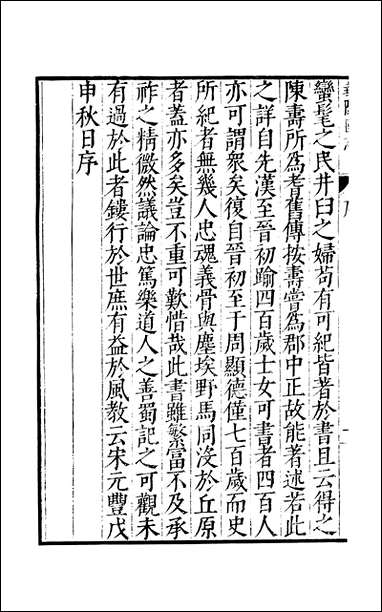 蠻髦之民井臼之婦苟有可紀皆著於書且云得之
陳壽所爲耆舊傳按壽嘗爲郡中正故能著述若此
之詳自先漢至晉初踰四百歲士女可書者四百人
亦可謂衆矣復自晉初至于周顯德僅七百歲而史
所紀者無幾人忠魂義骨與塵埃野馬同沒於丘原
者蓋亦多矣豈不重可歎惜哉此書雖繁富不及承
祚之精微然議論忠篤樂道人之善蜀記之可觀未
有過於此者鏤行於世庶有益於風教云宋元豐戊
申秋日序